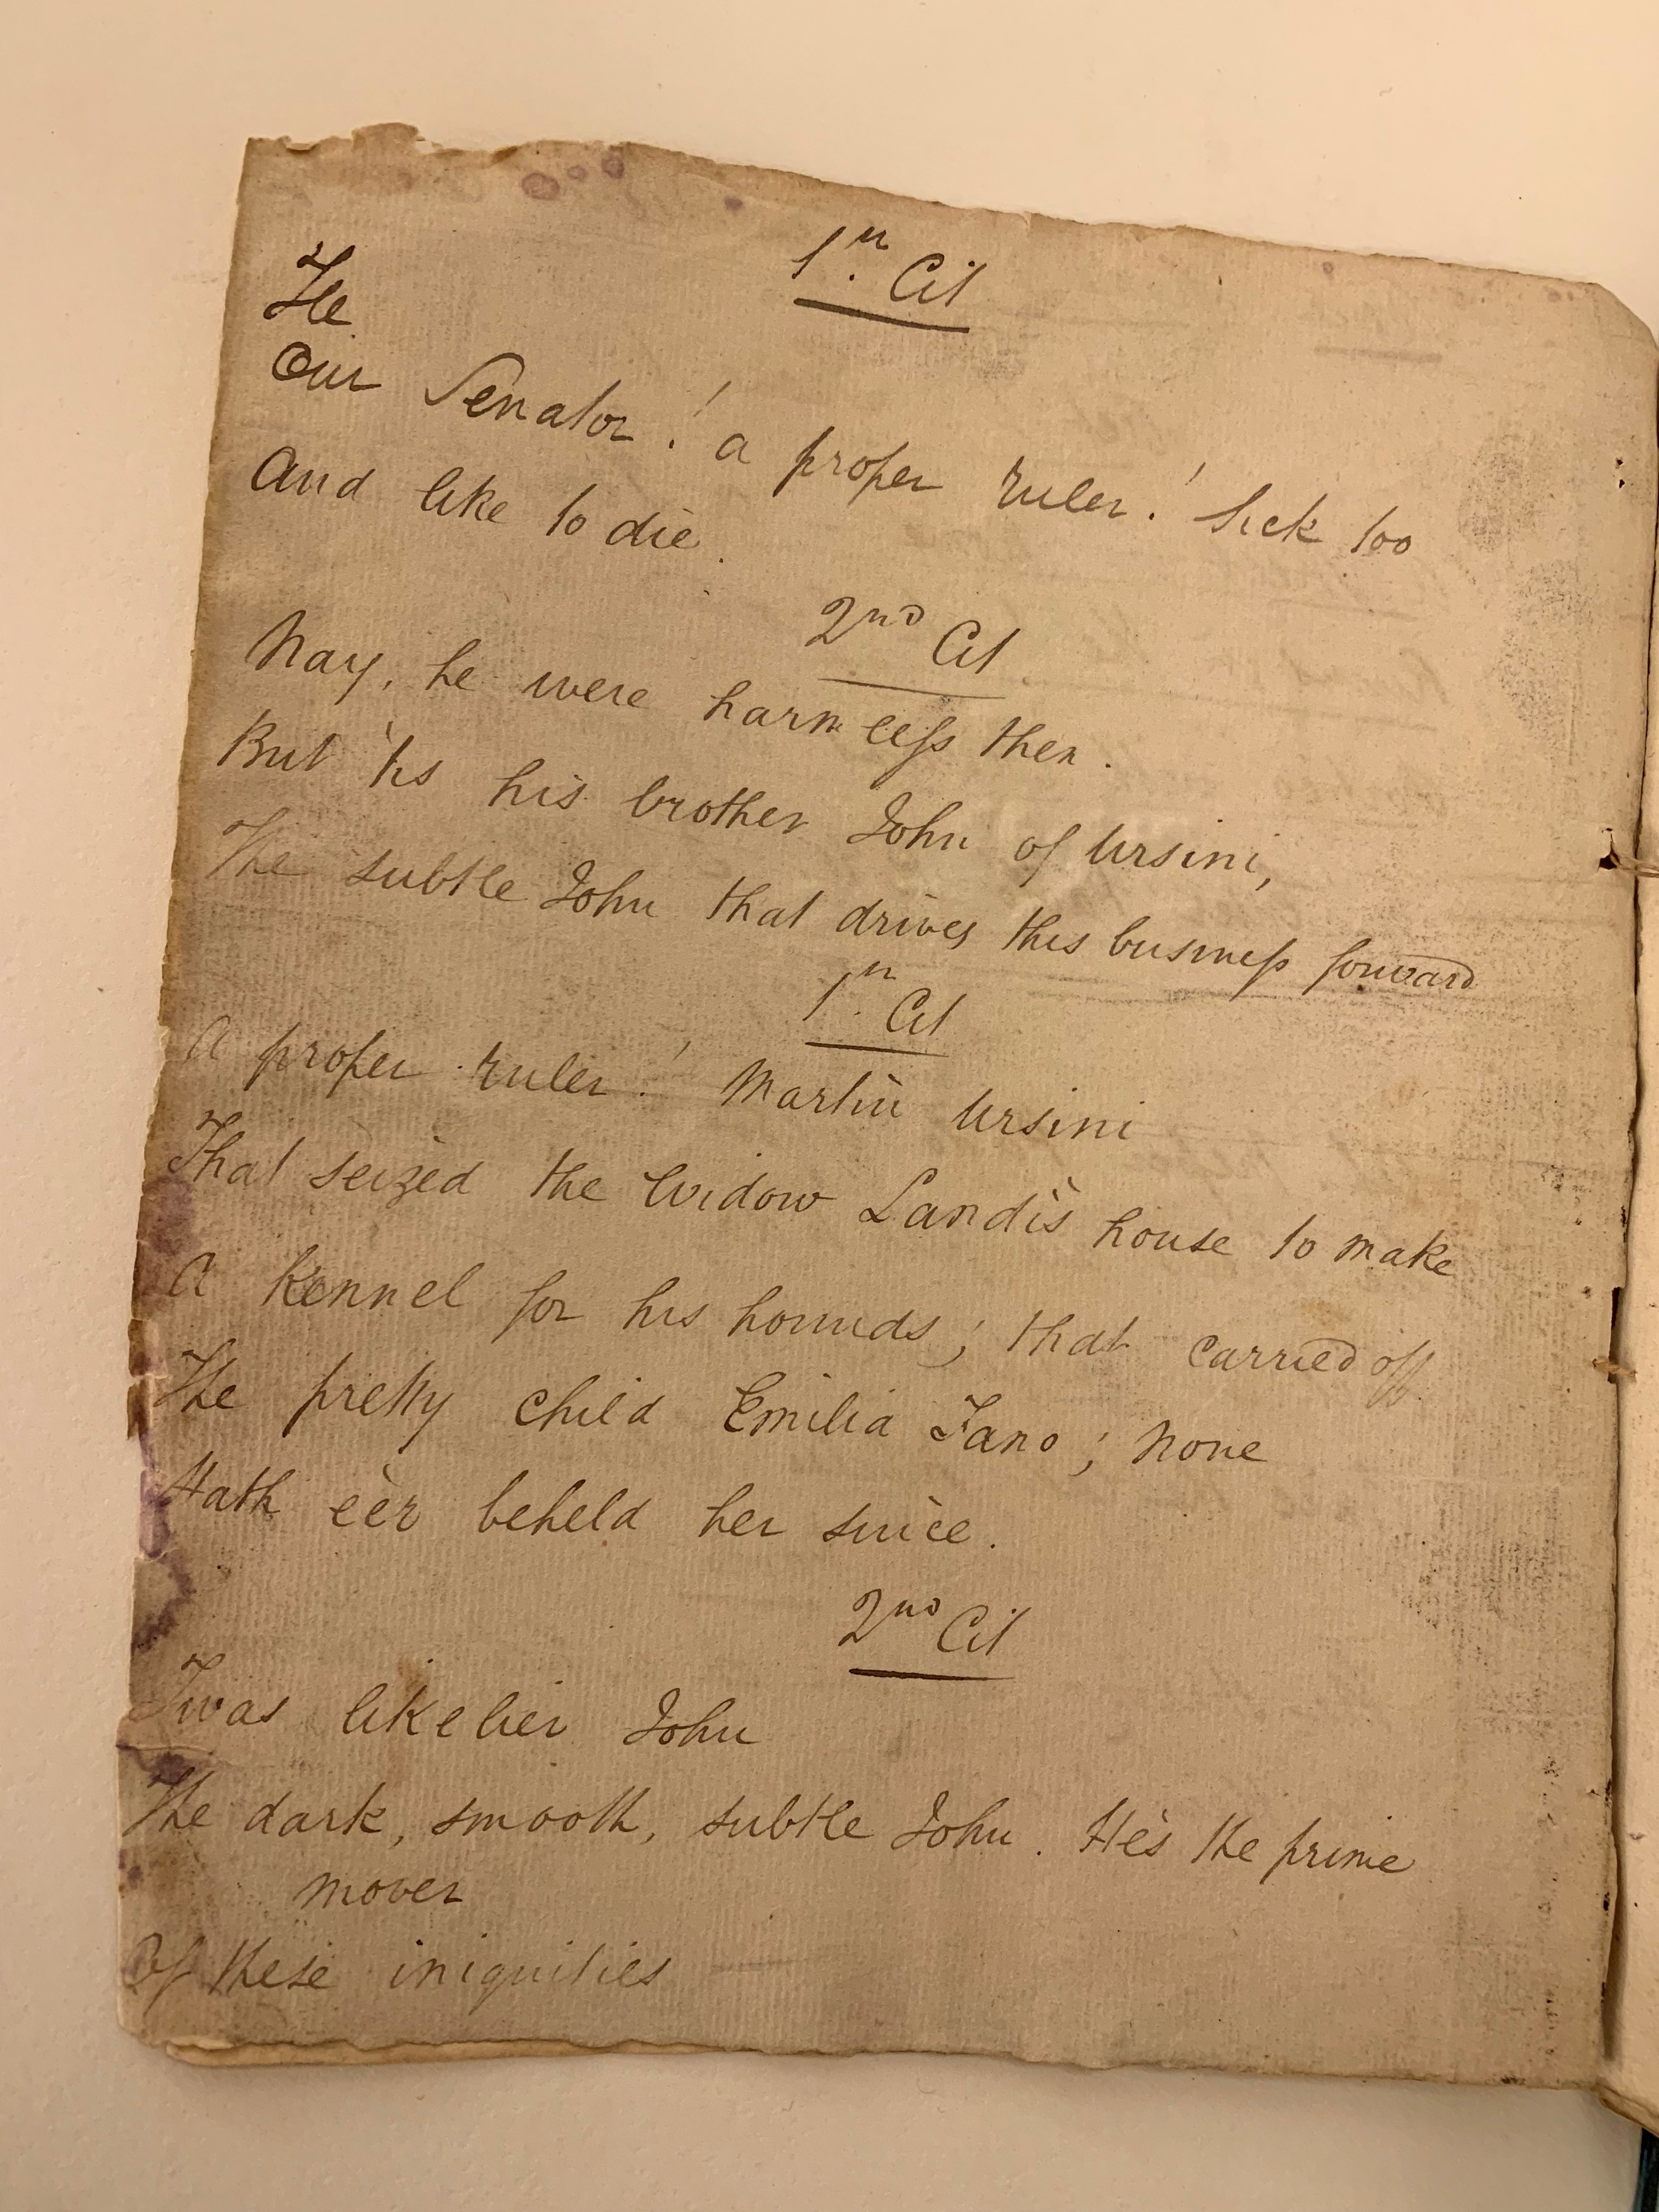 1st. Cit
He
Our Senator! a proper ruler! Sick too
And like to die.
2nd Cit
Nay, he were harmless then.
But 'tis his brother John of Ursini,
The subtle John that drives this business forward
1st. Cit
A proper ruler! Martin Ursini
That seized the Widow Landi's house to make
A kennel for his hounds; that carried off
The pretty child Emilia Fano; None
Hath e'er beheld her since.
2nd Cit
Twas likelier John
The dark, smooth, subtle John. He's the prime
mover
Of these iniquities